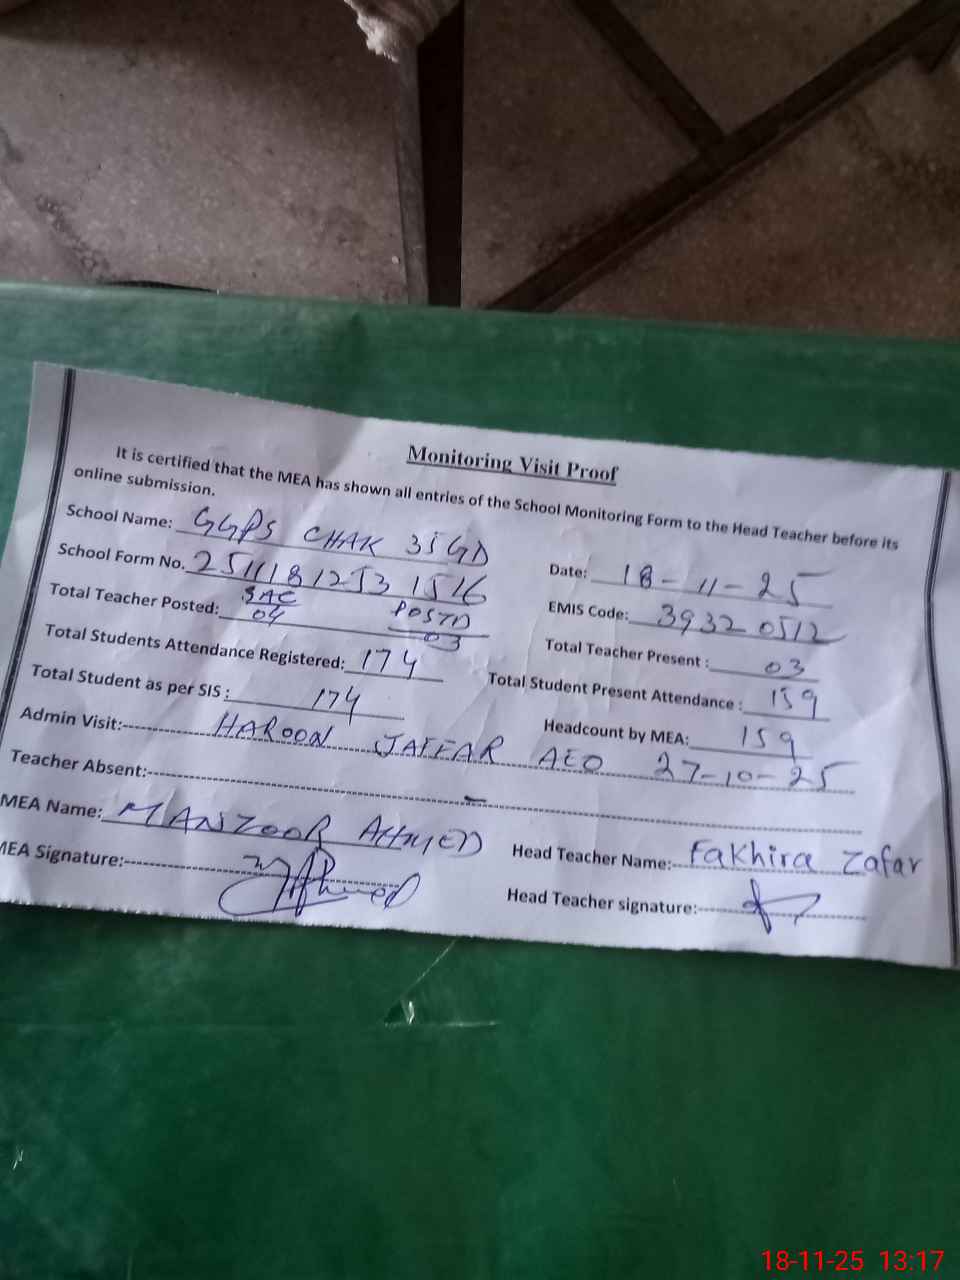 Monitoring Visit Proof
It is certified that the MEA has shown all entries of the School Monitoring Form to the Head Teacher before its
online submission.
School Name: GGPS CHAK 35GD
Date: 18-11-25
School Form No. 25111812531516
EMIS Code: 39320512
Total Teacher Posted: SAC 04 POSTD 03
Total Teacher Present : 03
Total Students Attendance Registered: 174
Total Student Present Attendance : 159
Total Student as per SIS : 174
Headcount by MEA: 159
Admin Visit: HAROON JAFFAR AEO 27-10-25
Teacher Absent: -
MEA Name: MANZOOR AHMED
Head Teacher Name: Fakhira Zafar
MEA Signature:
Head Teacher signature:
18-11-25 13:17